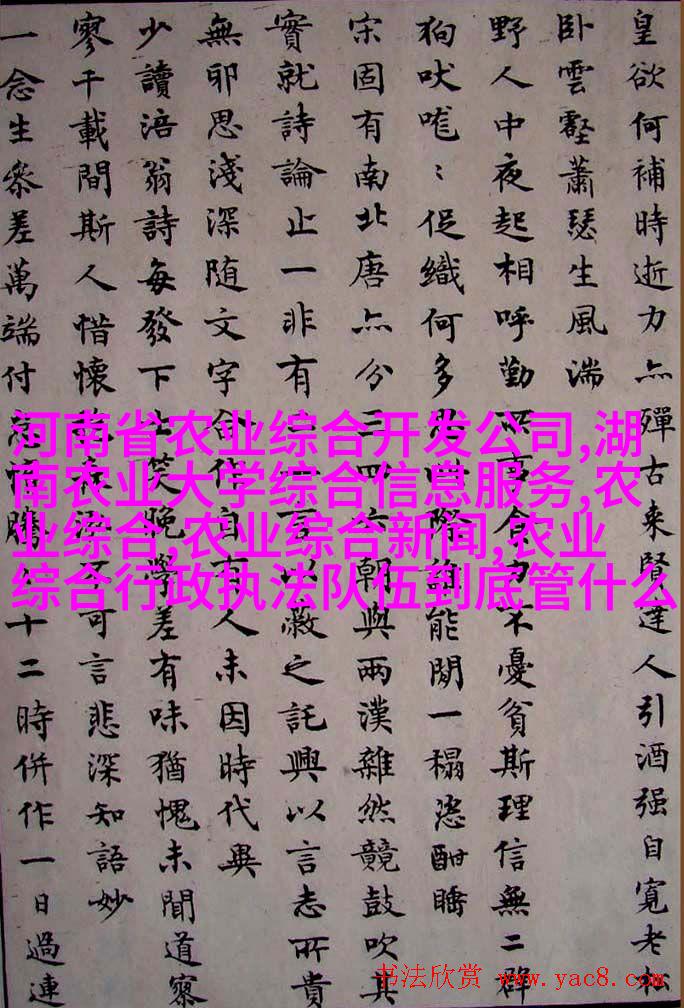 皇欲何補時逝力亦殫古來賢達人引酒强自寬老
卧雲壑蕭瑟生風湍
野人中夜起相呼勤事合力不憂貧斯理信無二群
狗吠嘊〻促織何多四際誰能閑一榻恣酣睡
宋固有南北唐亦分三四六朝與兩漢雜然競鼓吹其
實就詩論止一非有二一言以蔽之託興以言志所貴
無邪思淺深随文字自有人未因時代異
少讀涪翁詩每發下士笑晚學差有味猶愧未聞道寥
寥千載間斯人惜懷可言悲深知語妙
一念生參差萬端付騰十二時併作一日過連
河南省农业综合开发公司,湖
南农业大学综合信息服务,农
业综合,农业综合新闻,农业
综合行政执法队伍到底管什么
书法欣赏 www.yac8.com